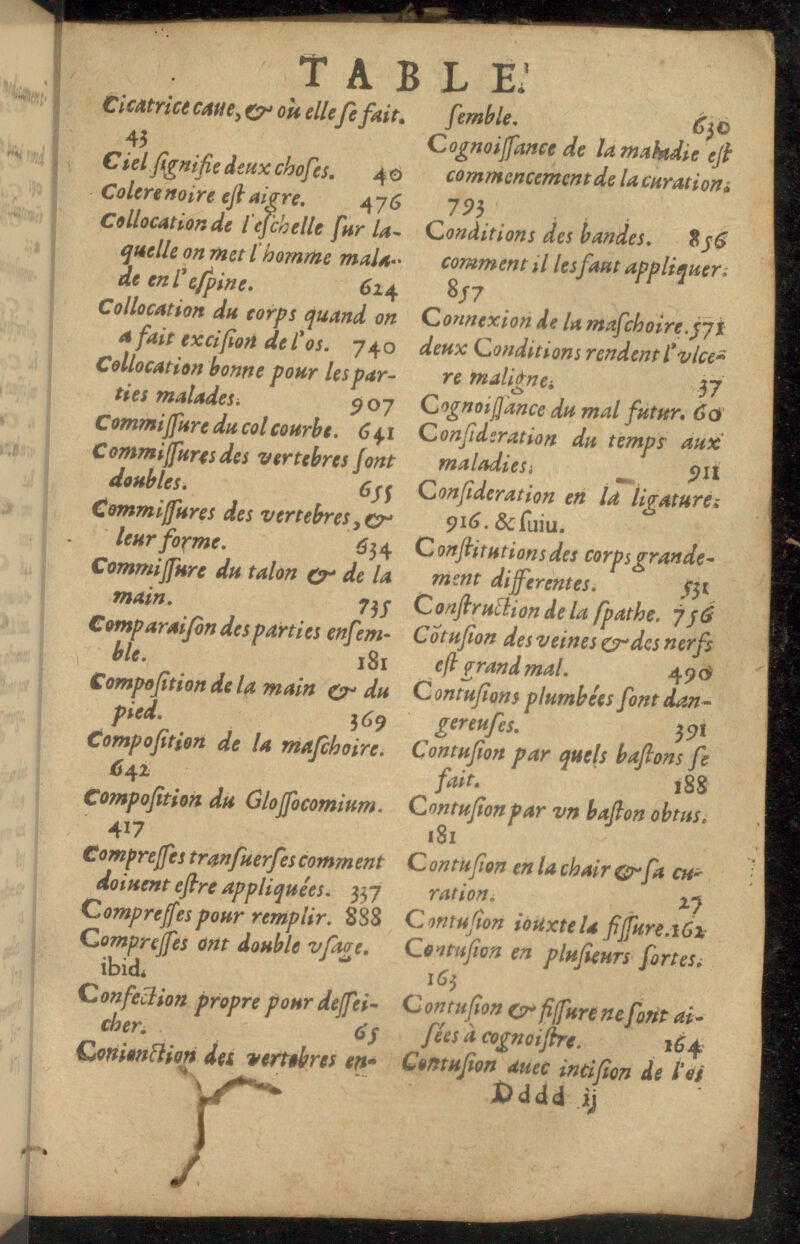 TABLE.
Cicatrice caue, & où elle se fait.
43
Ciel signifie deux choses. 40
Colere noire est aigre. 476
Collocation de l'eschelle sur la-
quelle on met l'homme mala-
de en l'espine. 624
Collocation du corps quand on
a fait excision de l'os. 740
Collocation bonne pour les par-
ties malades. 907
Commissure du col courbe. 641
Commissures des vertebres sont
doubles. 655
Commissures des vertebres, &
leur forme. 634
Commissure du talon & de la
main. 735
Comparaison des parties ensem-
ble. 181
Composition de la main & du
pied. 369
Composition de la maschoire.
642
Composition du Glossocomium.
417
Compresses transuerses comment
doiuent estre appliquées. 337
Compresses pour remplir. 888
Compresses ont double vsage.
ibid.
Confection propre pour dessei-
cher. 65
Conionction des vertebres en-
semble. 630
Cognoissance de la maladie est
commencement de la curation.
793
Conditions des bandes. 856
comment il les faut appliquer.
857
Connexion de la maschoire. 571
deux Conditions rendent l'vlce-
re maligne. 37
Cognoissance du mal futur. 60
Consideration du temps aux
maladies. 911
Consideration en la ligature.
916. & suiu.
Constitutions des corps grande-
ment differentes. 531
Construction de la spathe. 756
Cõtusion des veines & des nerfs
est grand mal. 490
Contusions plumbées sont dan-
gereuses. 391
Contusion par quels bastons se
fait. 188
Contusion par vn baston obtus.
181
Contusion en la chair & sa cu-
ration. 27
Contusion iouxte la fissure. 162
Contusion en plusieurs sortes.
163
Contusion & fissure ne sont ai-
sées à cognoistre. 164
Contusion auec incision de l'os
Dddd ij